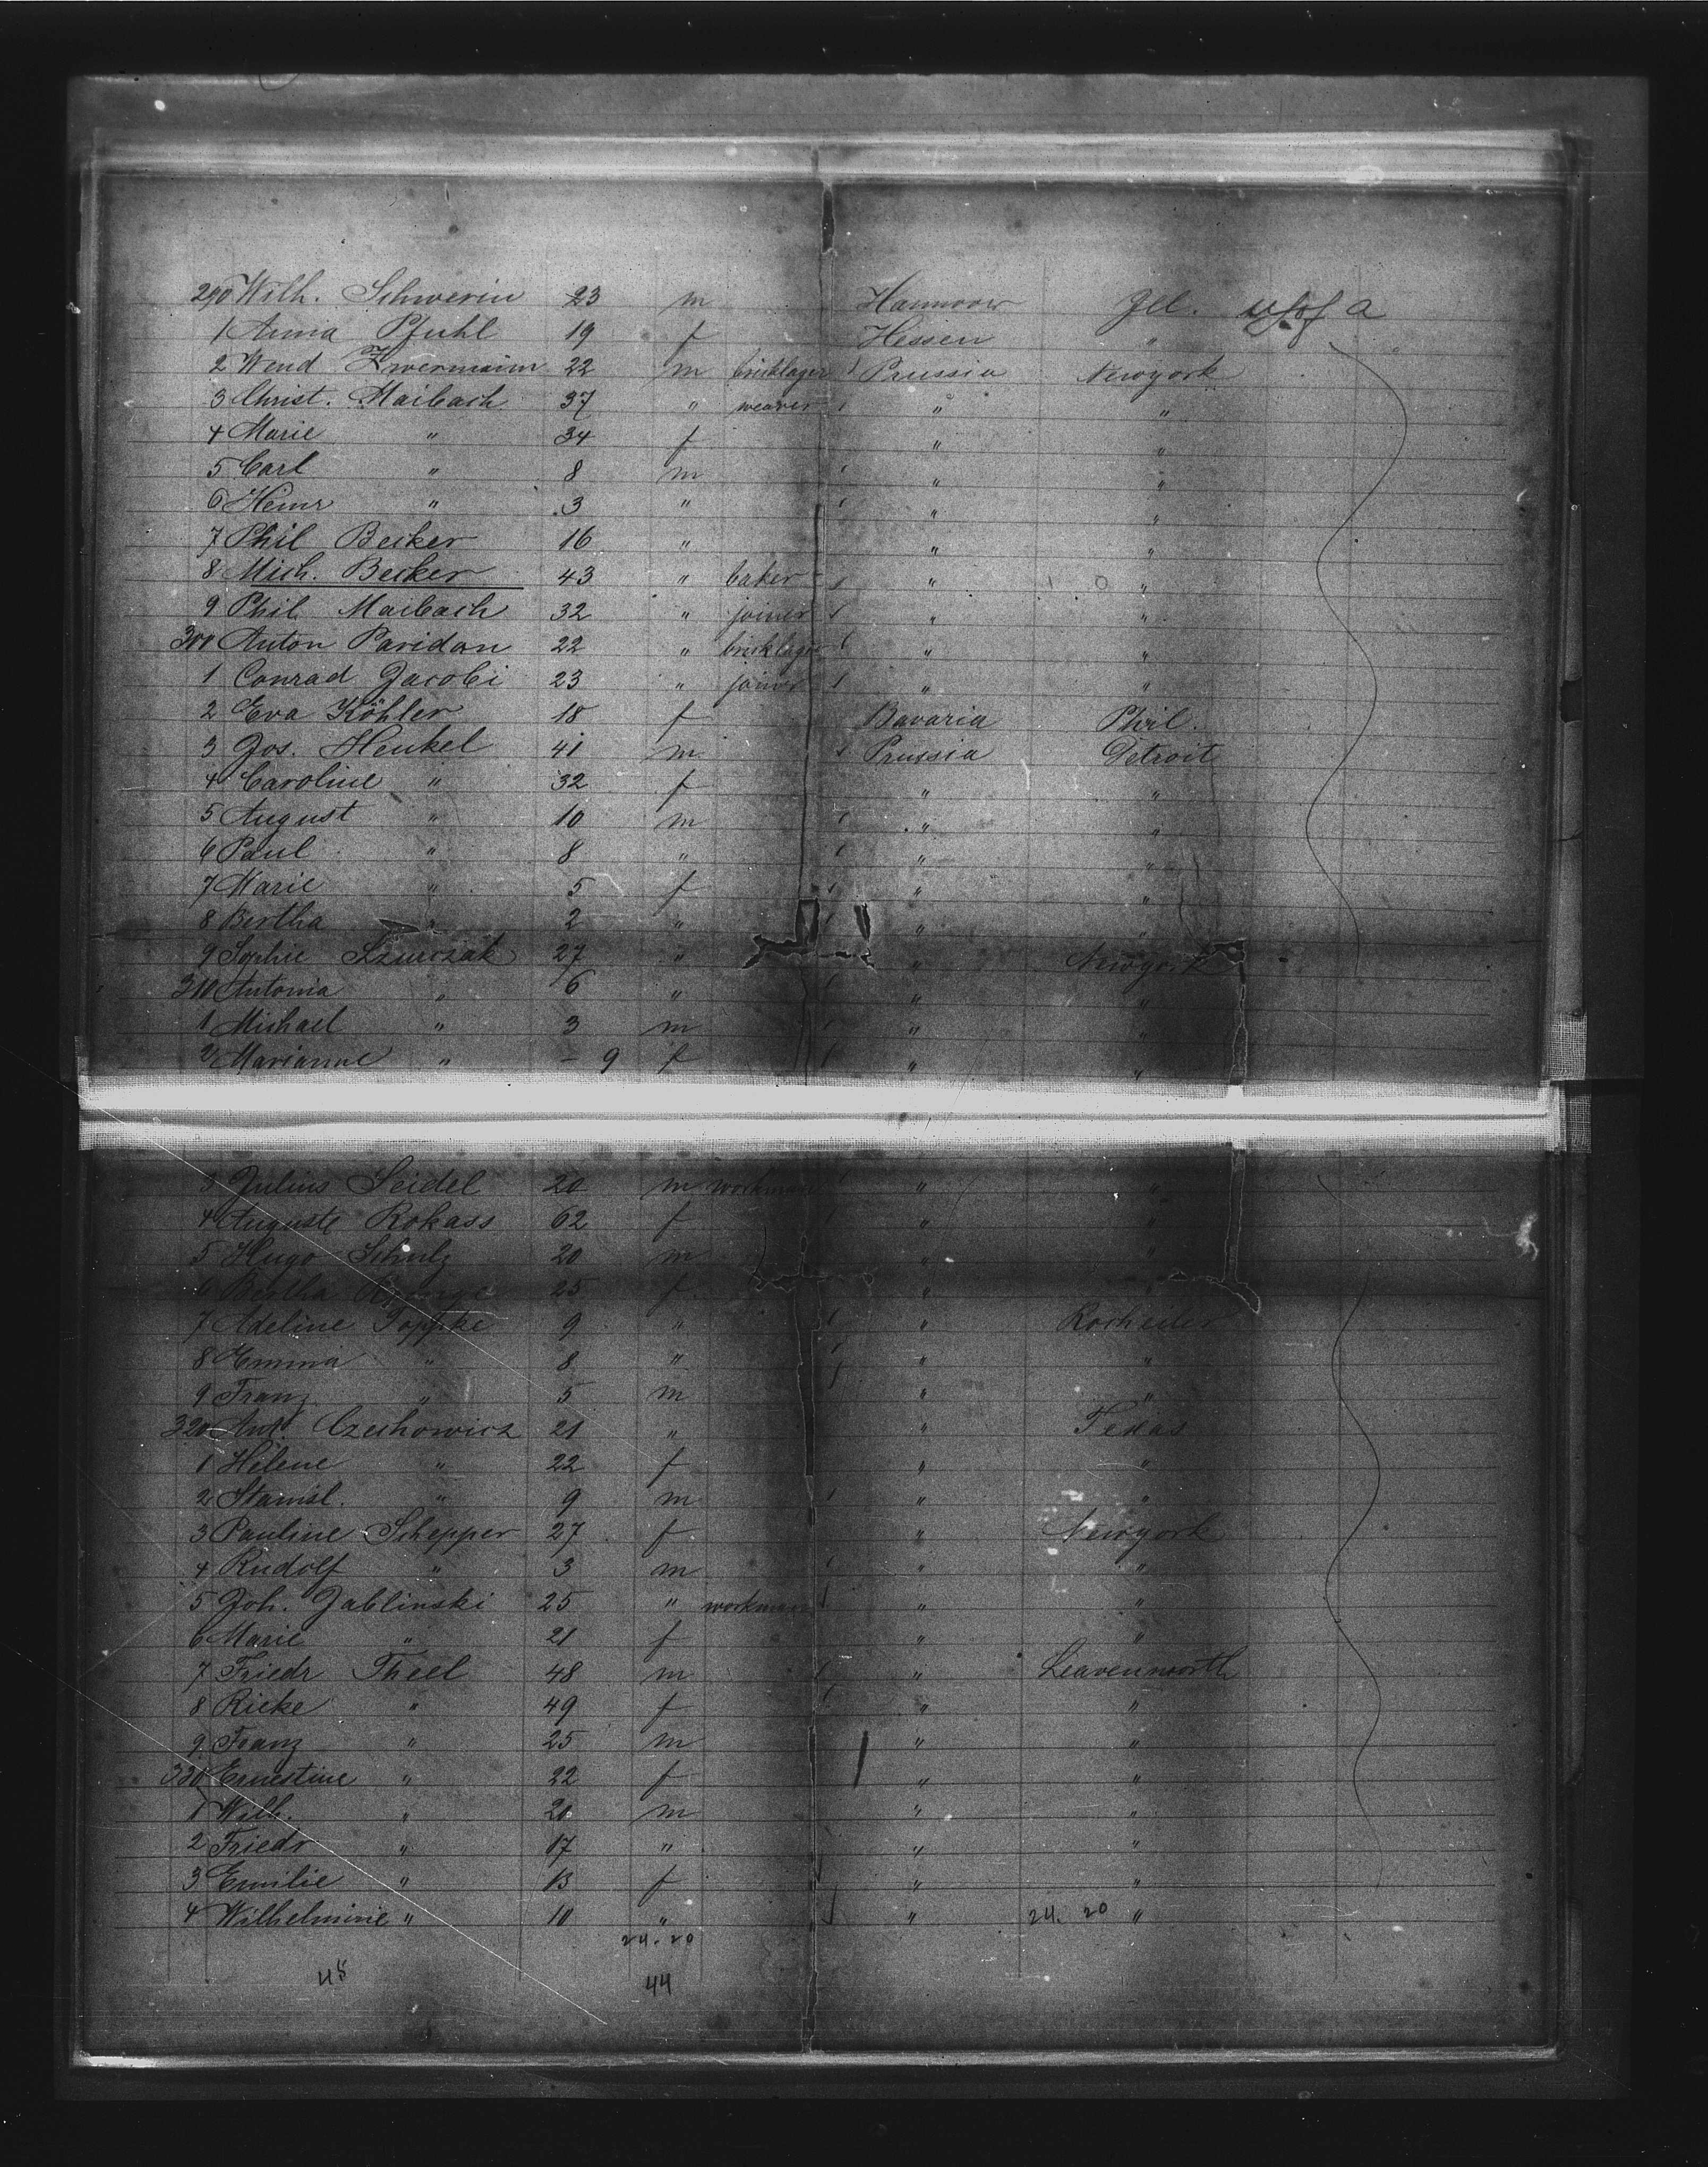 290 Wilh. Schwerin 23 m Hannover Ill. U S of A
1 Anna Pfuhl 19 f Hessen "
2 Wend Zwermann 22 m bricklayer Prussia Newyork
3 Christ. Maibach 37 " weaver " "
4 Marie " 34 f " "
5 Carl " 8 m " "
6 Heinr " 3 " " "
7 Phil Becker 16 " " "
8 Mich. Becker 43 " baker " "
9 Phil. Maibach 32 " joiner " "
300 Anton Paridon 22 " bricklayer " "
1 Conrad Jacobi 23 " joiner " "
2 Eva Köhler 18 f Bavaria Phil.
3 Jos. Henkel 41 m Prussia Detroit
4 Caroline " 32 f " "
5 August " 10 m " "
6 Paul " 8 " " "
7 Marie " 5 f " "
8 Bertha " 2 " " "
9 Sophie 27 " " Newyork
310 Antonia " 6 " " "
1 Michael " 3 m " "
2 Marianne " - 9 f " "
3 Julius Seidel 20 m workman " "
4 Auguste Rokass 62 f " "
5 Hugo Schulz 20 m " "
6 Bertha 25 f " "
7 Adeline Toppke 9 " "
8 Emma " 8 " " "
9 Franz " 5 m " "
320 Ant. Czechowicz 21 " " Texas
1 Helene " 22 f " "
2 Stanisl. " 9 m " "
3 Pauline Schepper 27 f " Newyork
4 Rudolf " 3 m " "
5 Joh. Jablinski 25 " workman " "
6 Marie " 21 f " "
7 Friedr Theel 48 m " Leavenworth
8 Rieke " 49 f " "
9 Franz " 25 m " "
330 Ernestine " 22 f " "
1 Wilh. " 20 m " "
2 Friedr " 17 " " "
3 Emilie " 13 f " "
4 Wilhelmine " 10 " " 24. 20 "
24. 20
45 44